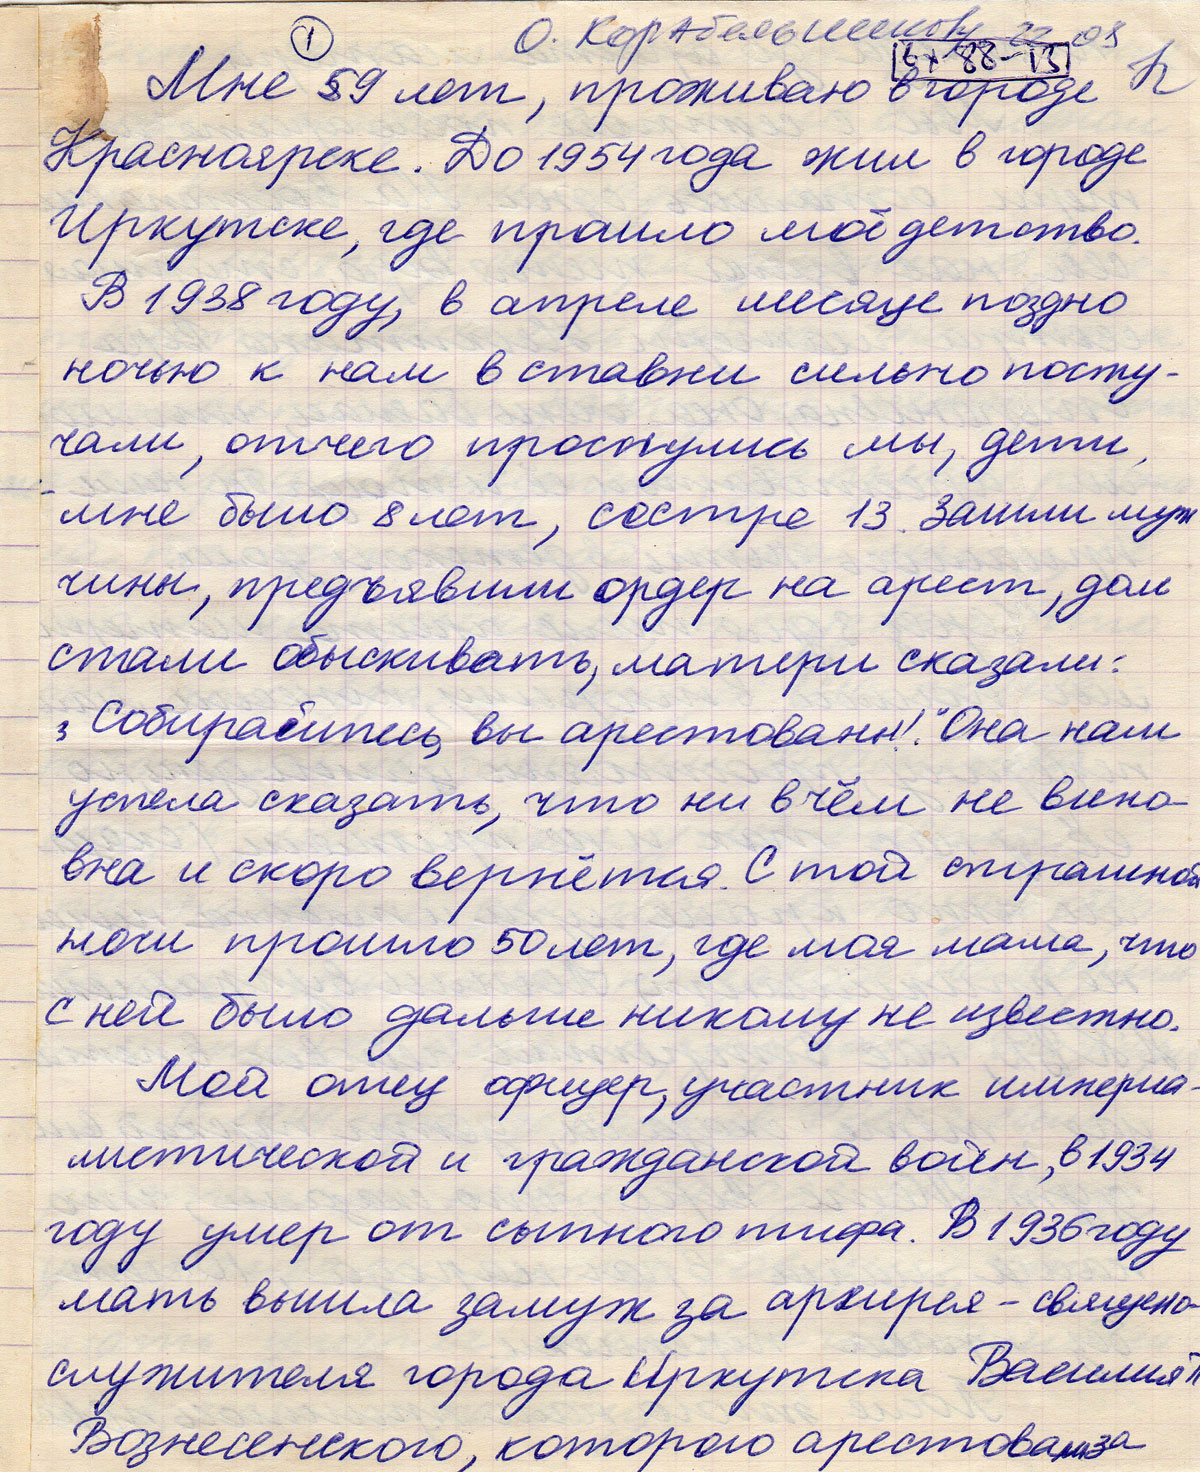 1
О. Корабельникову 22.03
Вх 88-13
Мне 59 лет, проживаю в городе
Красноярске. До 1954 года жил в городе
Иркутске, где прошло моё детство.
В 1938 году, в апреле месяце поздно
ночью к нам в ставни сильно посту-
чали, отчего проснулись мы, дети,
мне было 8 лет, сестре 13. Зашли муж
чины, предъявили ордер на арест, дом
стали обыскивать, матери сказали:
„Собирайтесь, вы арестованы!" Она нам
успела сказать, что ни в чём не вино-
вна и скоро вернётся. С той страшной
ночи прошло 50 лет, где моя мама, что
с ней было дальше никому не известно.
Мой отец офицер, участник империа-
листической и гражданской войн, в 1934
году умер от сыпного тифа. В 1936 году
мать вышла замуж за архирея - священо-
служителя города Иркутска Василия
Вознесенского, которого арестовали за